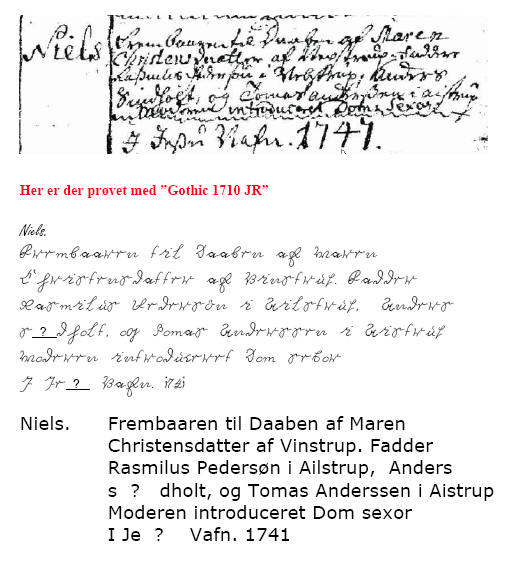 Niels
Frembaaren til Daaben af Maren
Christensdatter af
i Anders
og Tomas Anderssen i Aistrup
Moderen introduceret Dom: Sexag
J Jesu Nafn. 1741.
Her er der prøvet med ”Gothic 1710 JR”
Niels.
Frembaaren til Daaben af Maren
Christensdatter af Vinstrup. Fadder
Rasmilus Pedersøn i Ailstrup, Anders
s ? dholt, og Tomas Anderssen i Aistrup
Moderen introduceret Dom sexor
I Je ? Vafn. 1741
Niels. Frembaaren til Daaben af Maren
Christensdatter af Vinstrup. Fadder
Rasmilus Pedersøn i Ailstrup, Anders
s ? dholt, og Tomas Anderssen i Aistrup
Moderen introduceret Dom sexor
I Je ? Vafn. 1741